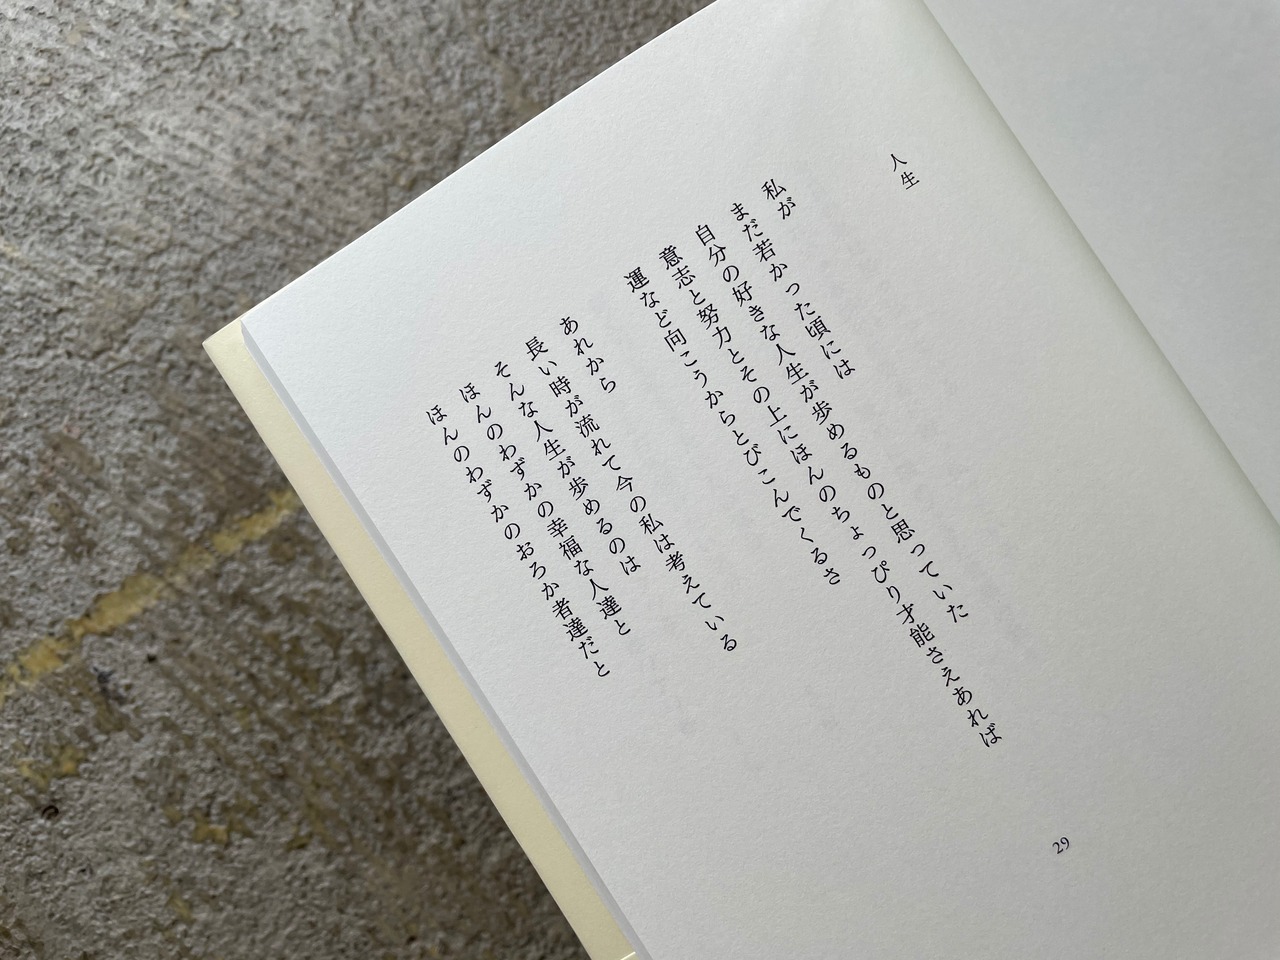 人生
私が
まだ若かった頃には
自分の好きな人生が歩めるものと思っていた
意志と努力とその上にほんのちょっぴり才能さえあれば
運など向こうからとびこんでくるさ
あれから
長い時が流れて今の私は考えている
そんな人生が歩めるのは
ほんのわずかの幸福な人達と
ほんのわずかのおろか者達だと
29